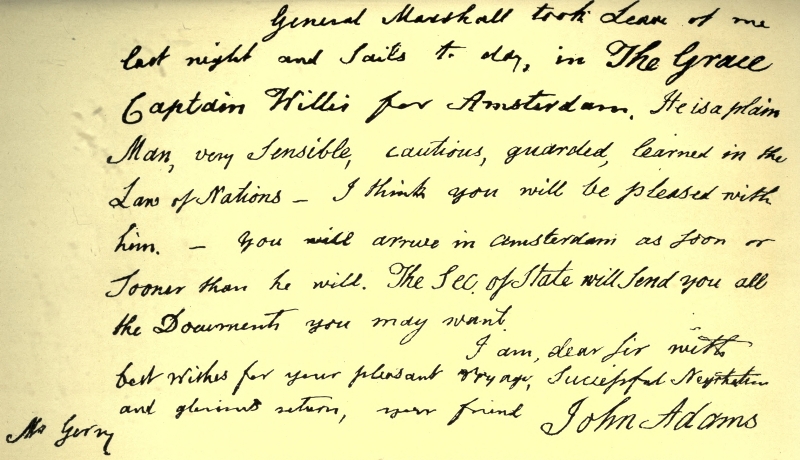 General Marshall took Leave of me
last night and Sails to day, in The Grace
Captain Willis for Amsterdam. He is a plain
Man, very Sensible, cautious, guarded, learned in the
Law of Nations — I think you will be pleased with
him. — You will arrive in Amsterdam as soon or
Sooner than he will. The Sec. of State will Send you all
the Documents you may want.
I am, dear Sir with
best Wishes for your pleasant Voyage, Successful Negotiation
and glorious return, your friend John Adams
Mr Gerry